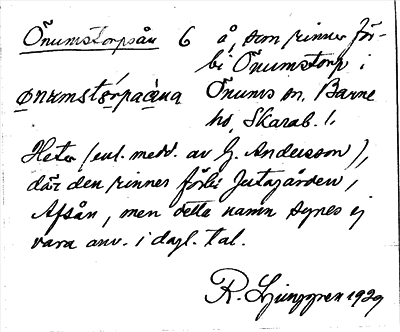 Önumstorpsån 6 å, som rinner för-
bi Önumstorp i
ɷnɐmstɷ́rpaǻna Önums sn, Barne
hd, Skarab. l.
Heter (enl. medd. av G. Andersson),
där den rinner förbi Jutagården,
Afsån, men detta namn synes ej
vara anv. i dagl. tal.
R. Ljunggren 1929